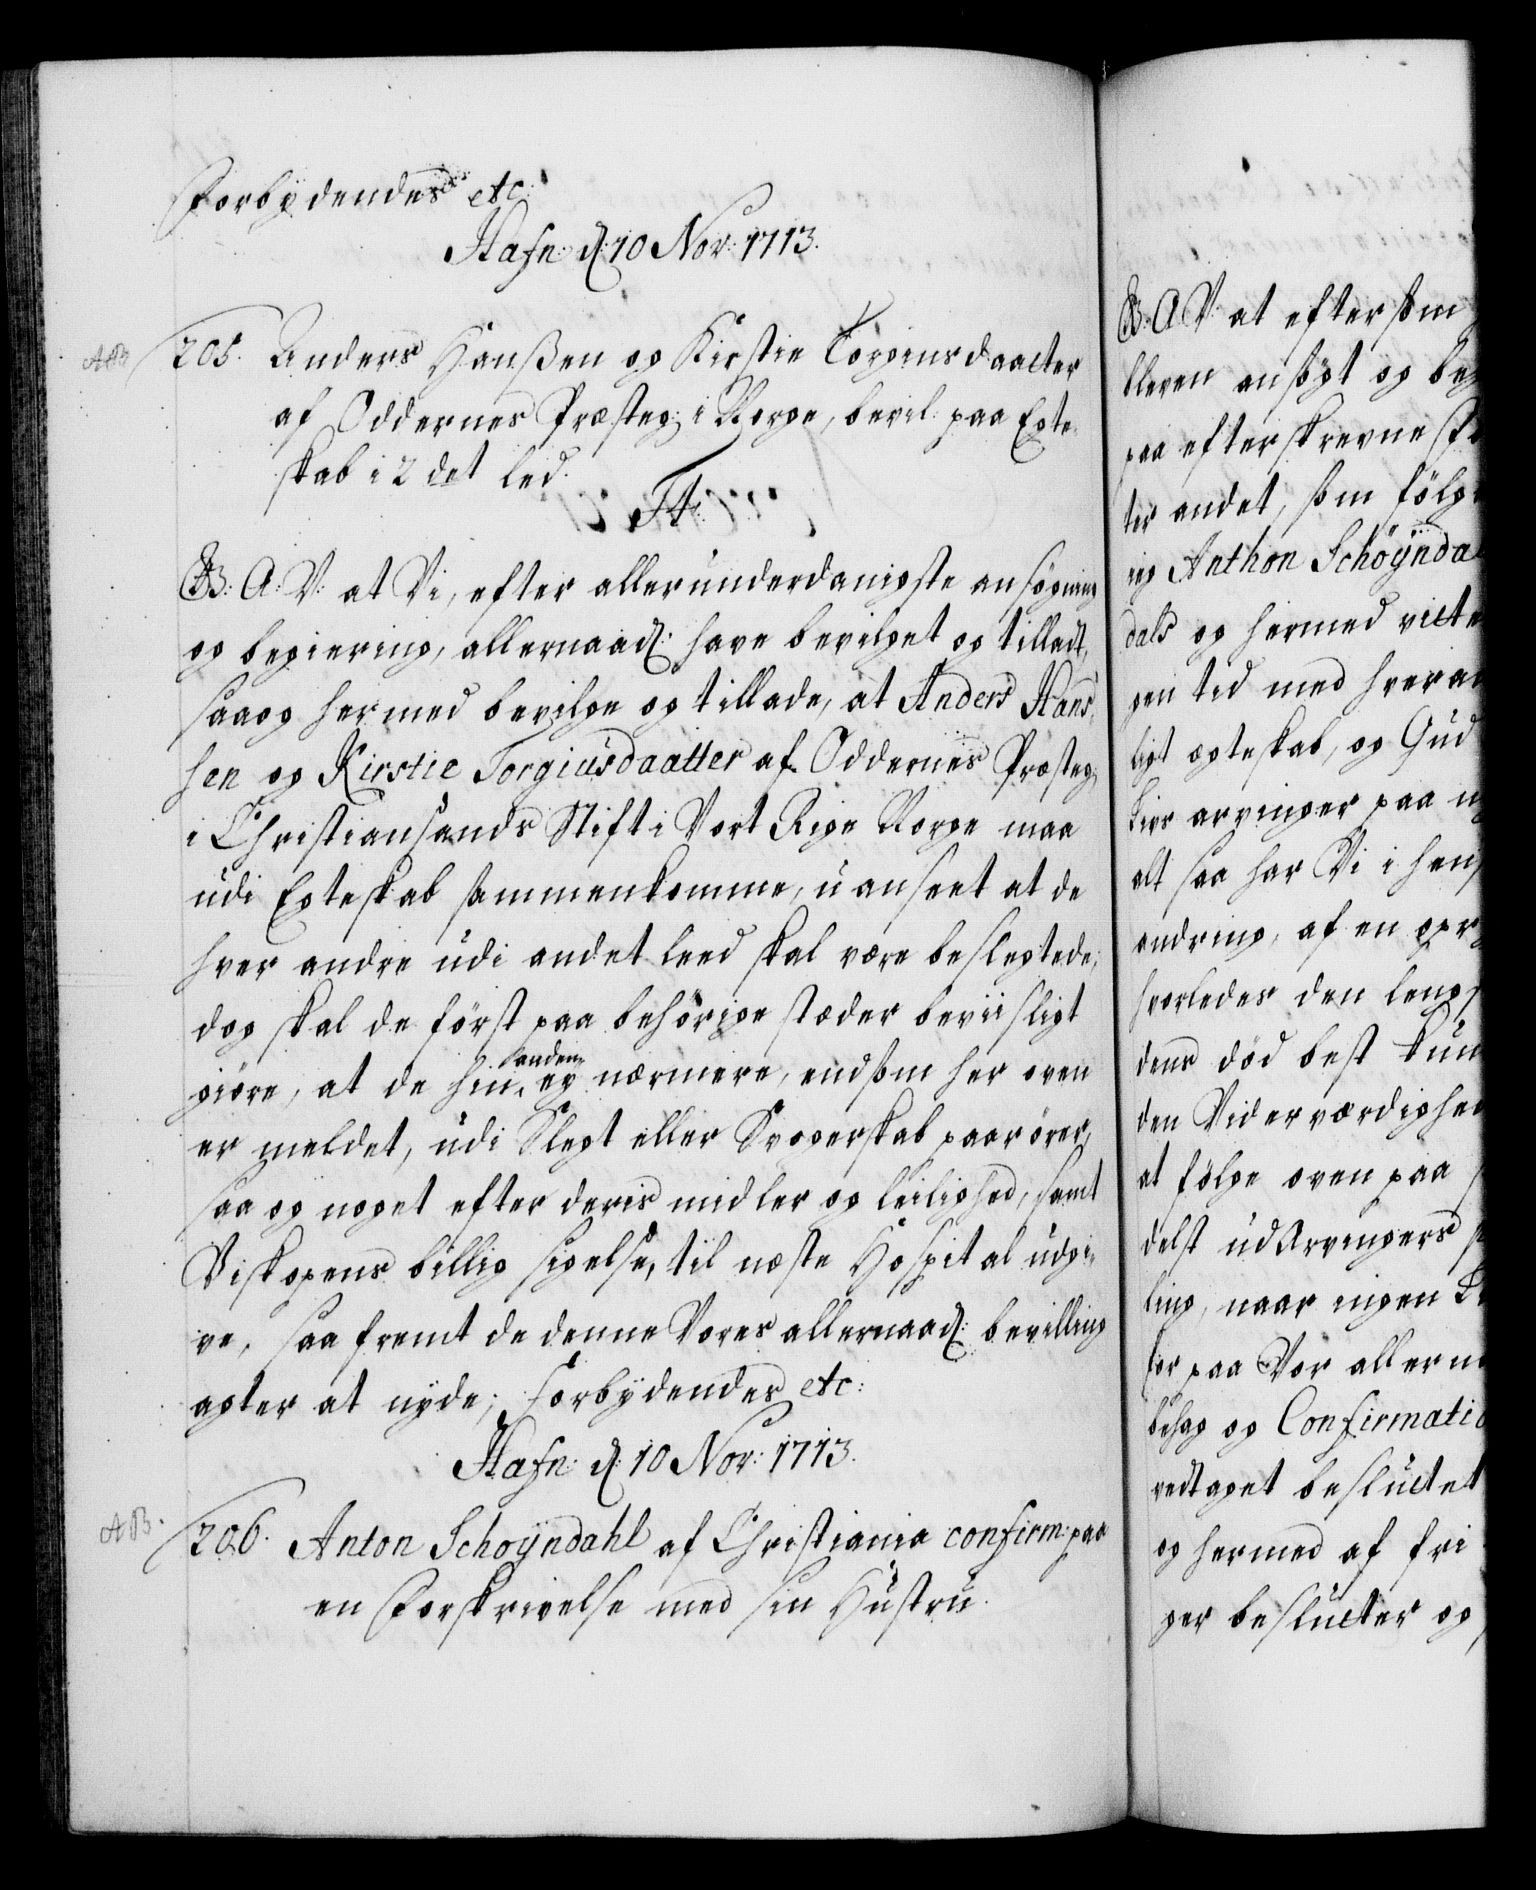 Forbydendes etc:
Hafn: d: 10 Nov: 1713.
AB 205. Anders Hanßen og Kirstie Torgiusdaatter
af Oddernes Præsteg: i Norge, bevil: paa Egte
skab i 2 det led.
F4:
G: A: V: at Vi, efter allerunderdanigste ansøgning
og begiering, allernaad: have bevilget og tilladt,
saa og hermed bevilge og tillade, at Anders Hans
sen og Kirstie Torgiusdaatter af Oddernes Præsteg:
i Christiansands Stift i Vort Rige Norge maa
udi Egteskab sammenkomme, uanseet at de
hver andre udi andet leed skal være beslegtede;
dog skal de først paa behörige stæder beviisligt
giöre, at de hin anden ey nærmere, end som her oven
er meldet, udi Slegt eller Svogerskab paarörer,
saa og noget efter deris midler og leilighed, samt
Biskopens billig sigelse, til næste Hospital udgi
ve, saa fremt de denne Vores allernaad: bevilling
agter at nyde; Forbydendes etc:
Hafn: d: 10 Nov: 1713.
AB. 206. Anton Schoÿndahl af Christiania confirm: paa
en Forskrivelse med sin Hustru.
G: A V: at eftersom
bleven ansögt og be
paa efterskrevne
ter andet, som fölg
Anthon Schöÿnda
dals og hermed vitte
gen tid med hveran
ligt ægteskab, og Gud
Livs arvinger paa
alt saa har Vi i hen
andring, af en
hvorledes den leng
dens död best kun
den Vederværdighed
at fölge oven paa
delst udArvingers
ling, naar ingen
for paa Vor allern
behag og Confirmatio
vedtaget besluttet
og hermed af fri
ger beslutter og